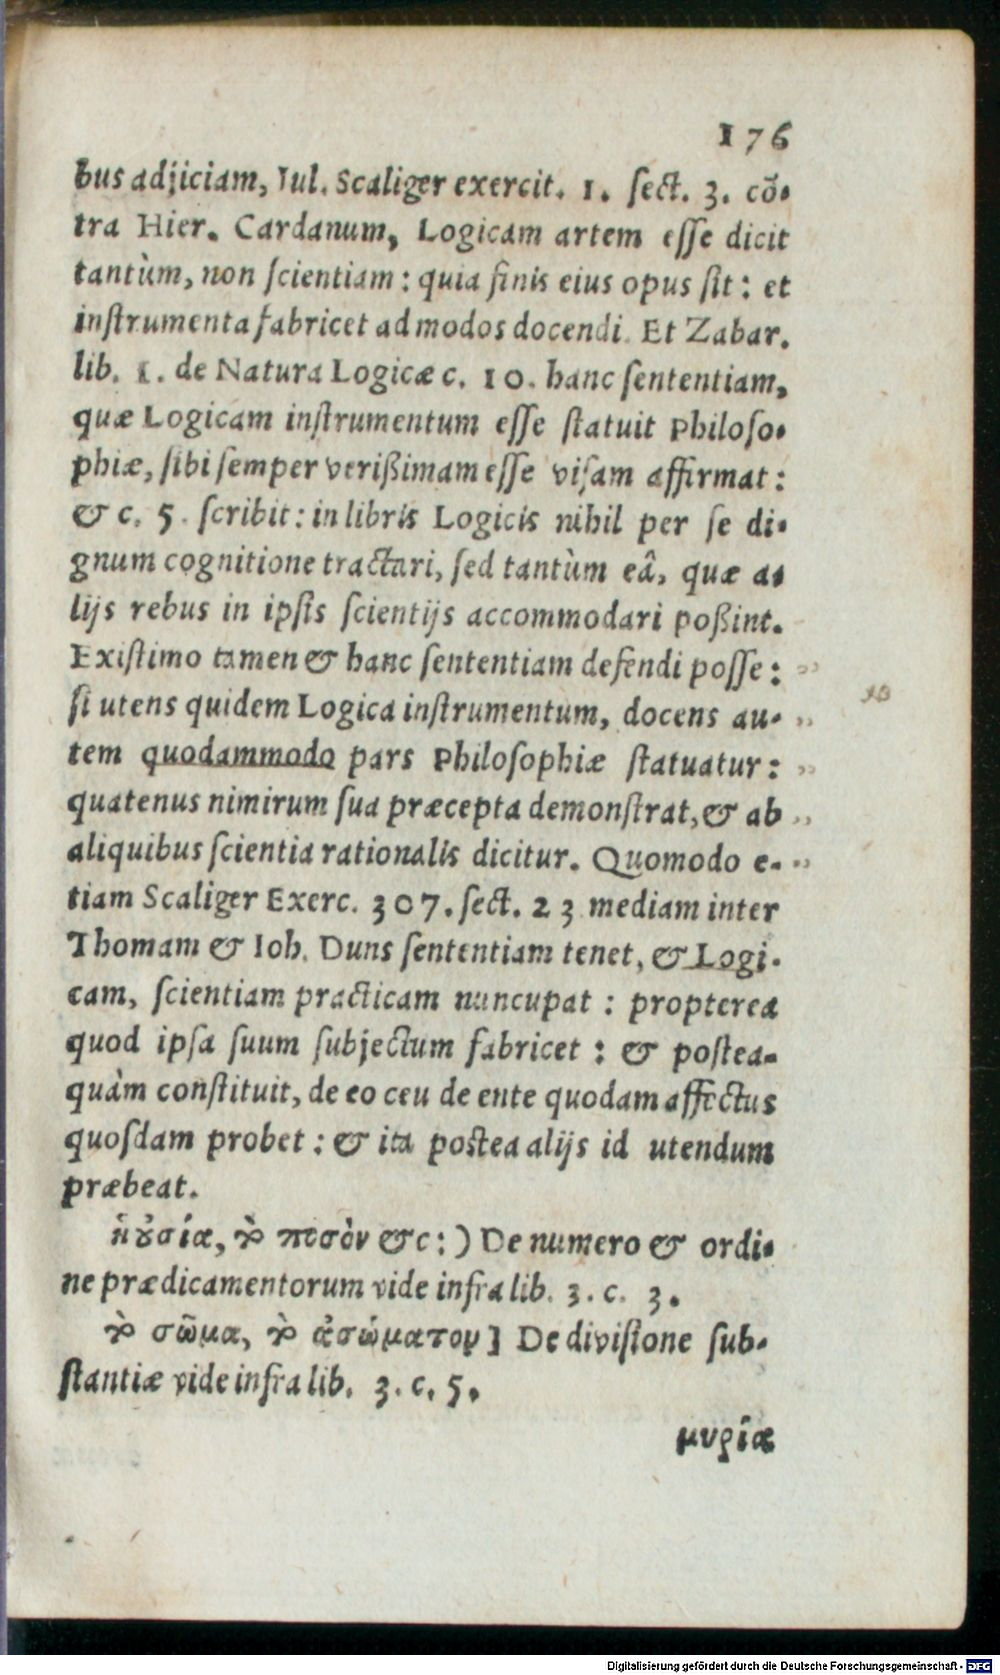 176
bus adjiciam, Iul. Scaliger exercit. 1. ſect. 3. cō-
tra Hier. Cardanum, Logicam artem eſſe dicit
tantùm, non ſcientiam: quia finis eius opus ſit: et
inſtrumenta fabricet ad modos docendi. Et Zabar.
lib. 1. de Natura Logicæ c. 10. hanc ſententiam,
quæ Logicam inſtrumentum eſſe ſtatuit Philoſo-
phiæ, ſibi ſemper verißimam eſſe viſam affirmat:
& c. 5. ſcribit: in libris Logicis nihil per ſe di-
gnum cognitione tractari, ſed tantùm eâ, quæ a-
lijs rebus in ipſis ſcientijs accommodari poßint.
Exiſtimo tamen & hanc ſententiam defendi poſſe: ,,
ſi utens quidem Logica inſtrumentum, docens au- ,,
tem quodammodo pars Philoſophiæ ſtatuatur: ,,
quatenus nimirum ſua præcepta demonſtrat, & ab ,,
aliquibus ſcientia rationalis dicitur. Quomodo e- ,,
tiam Scaliger Exerc. 307. ſect. 23 mediam inter
Thomam & Ioh. Duns ſententiam tenet, & Logi-
cam, ſcientiam practicam nuncupat: propterea
quod ipſa ſuum ſubjectum fabricet: & poſtea-
quàm conſtituit, de eo ceu de ente quodam affectus
quoſdam probet: & ita poſtea alijs id utendum
præbeat.
ἡ ȣ̓σία, τὸ ποσὸν &c:) De numero & ordi-
ne prædicamentorum vide infra lib. 3. c. 3.
τὸ σῶμα, τὸ ἀσώματον] De diviſione ſub-
ſtantiæ vide infra lib. 3. c. 5.
μυρία
Digitalisierung gefördert durch die Deutsche Forschungsgemeinschaft - DFG